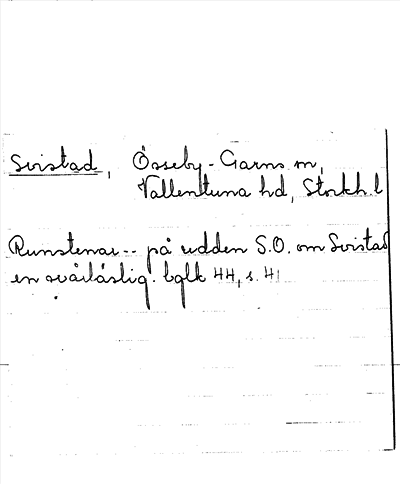 Svistad, Össeby-Garns m,
Vallentuna hd, Stockh. l
Runstenar -- på udden S.O. om Svistad
en svårläslig. bglk 44, s. 41